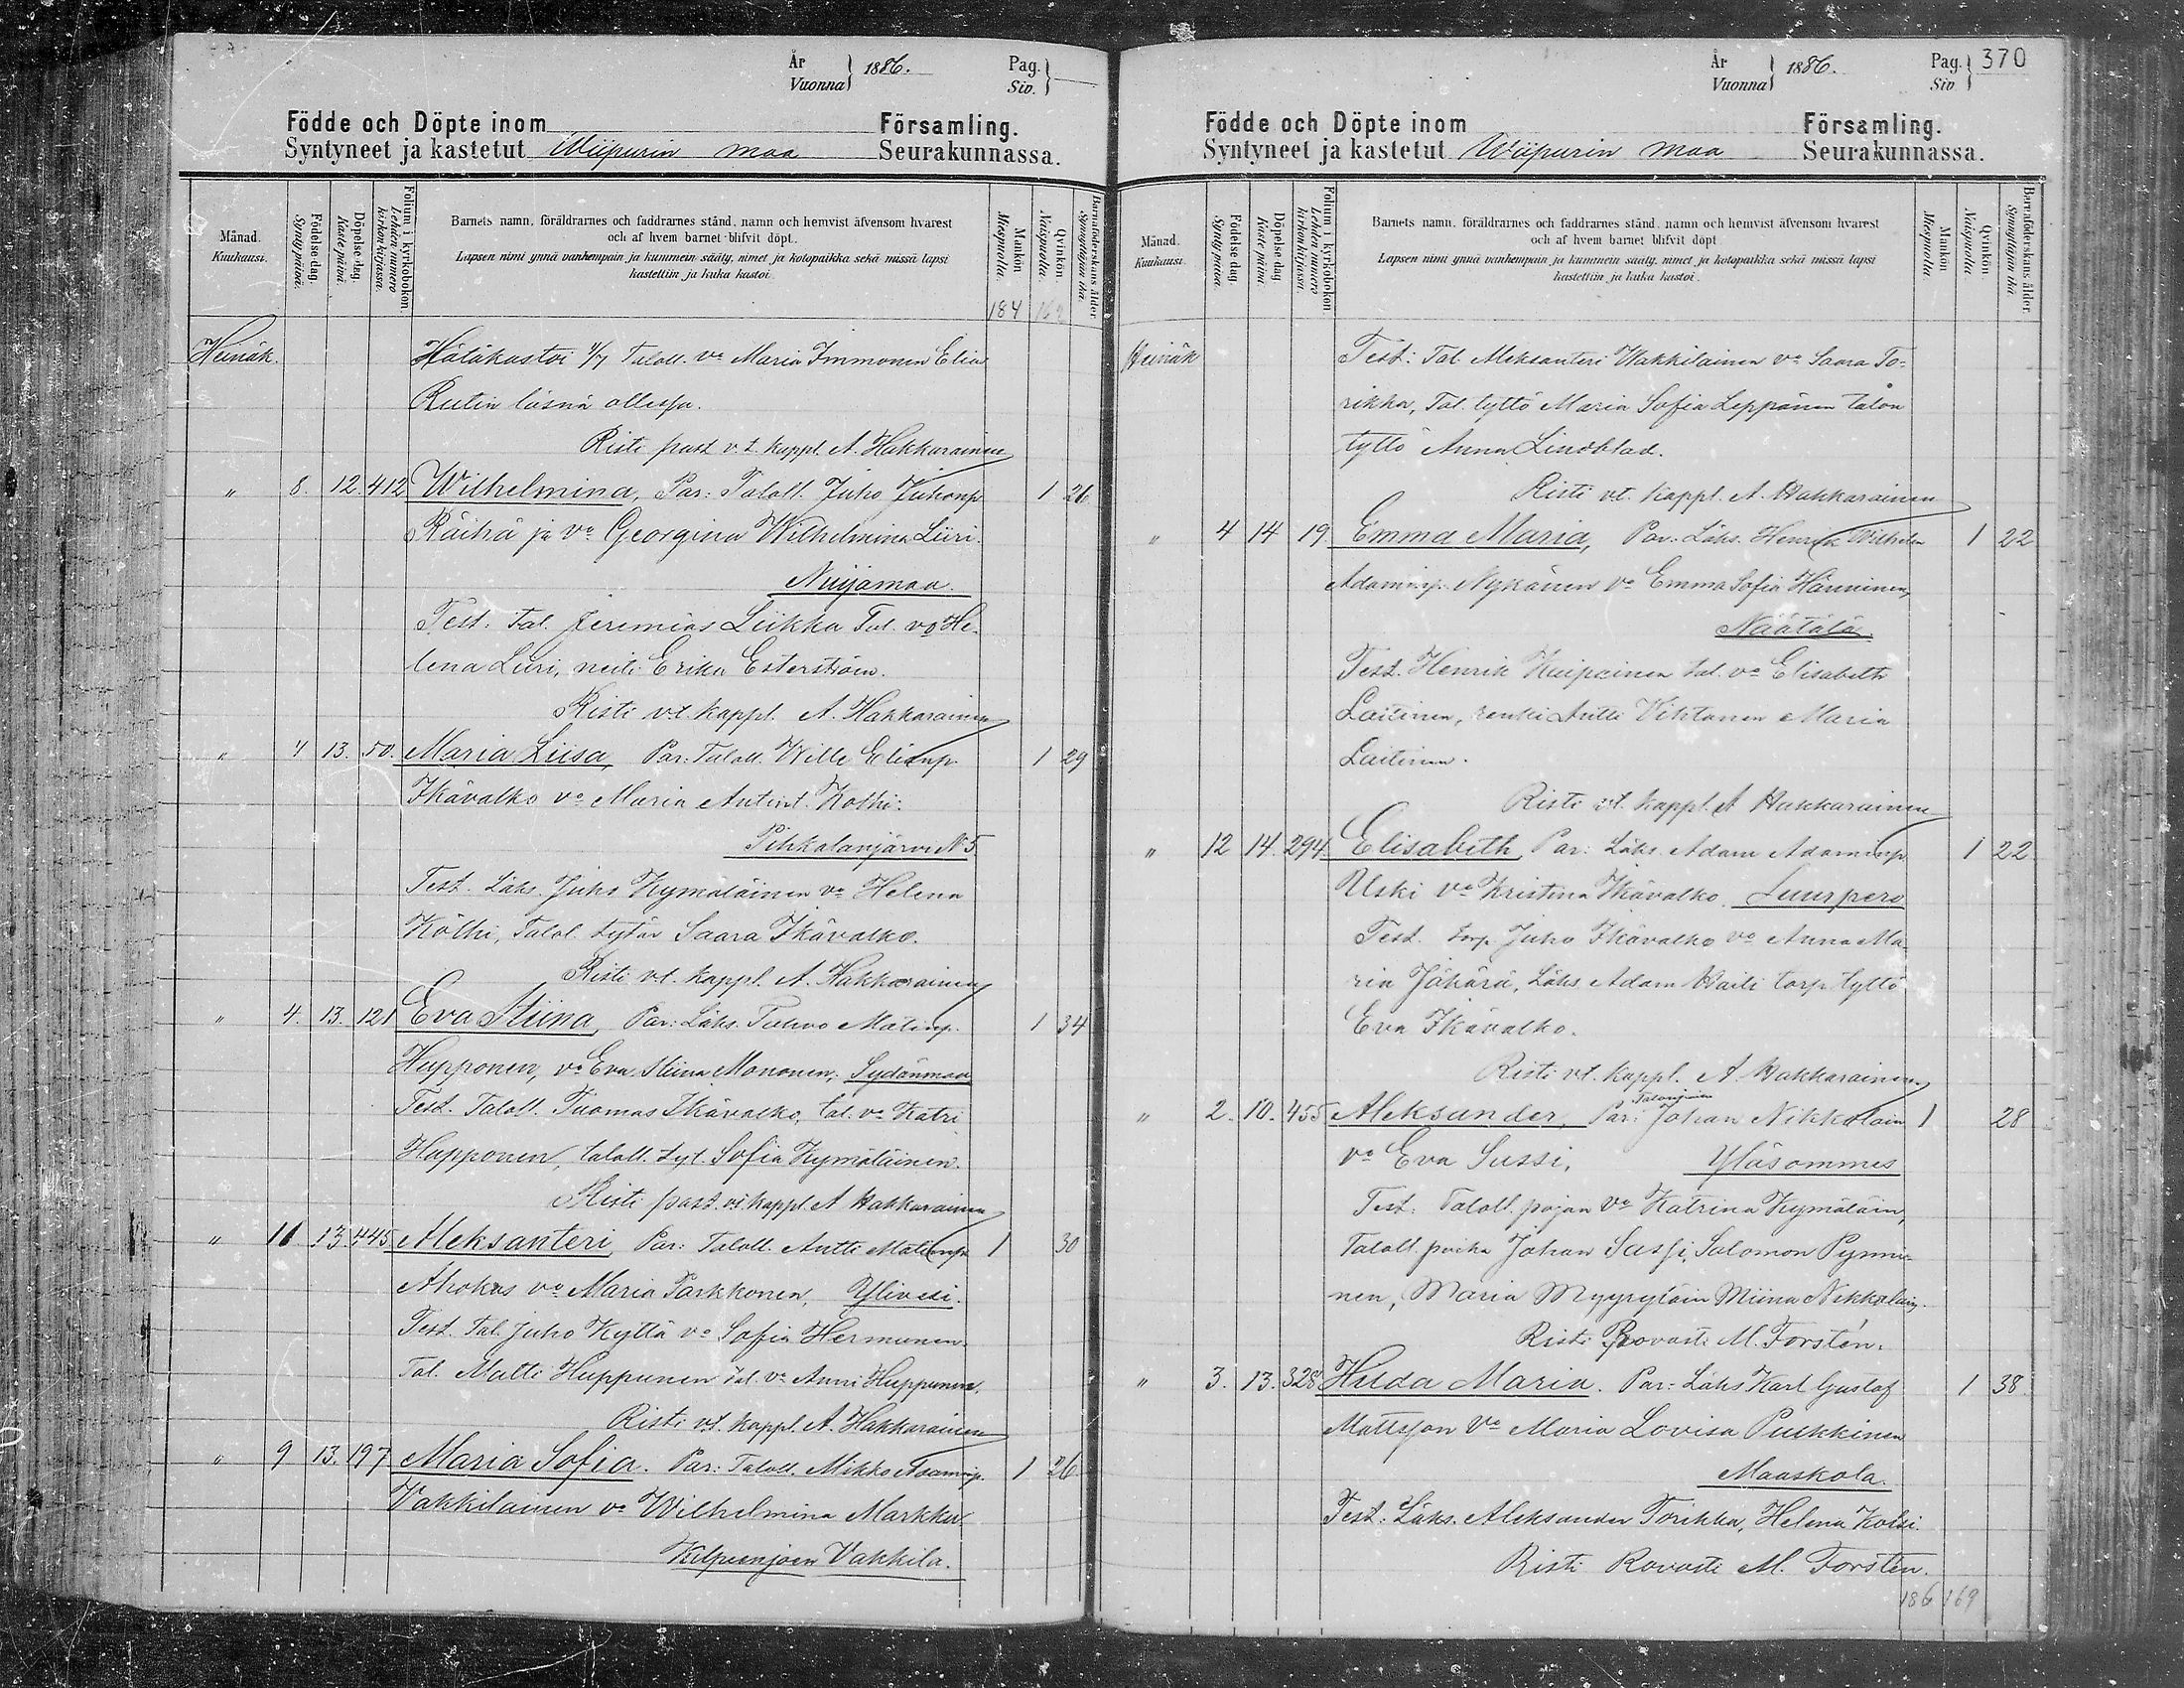 År
Vuonna } 1886.
Pag.
Siv. }
Födde och Döpte inom Församling.
Syntyneet ja kastetut Wiipurin maa Seurakunnassa.
Månad.
Kuukausi.
Födelse dag.
Synty päivä.
Döpelse dag.
Kaste päivä.
Folium i kyrkoboken.
Lehden numero kirkonkirjassa.
Barnets namn, föräldrarnes och faddrarnes stånd, namn och hemvist äfvensom hvarest
och af hvem barnet blifvit döpt.
Lapsen nimi ynnä vanhempain ja kummein sääty, nimet ja kotopaikka sekä missä lapsi
kastettiin ja kuka kastoi.
Mankön.
Miespuolia.
Qvinkön.
Naispuolia.
Barnaföderskans ålder.
Synnyttäjän ikä.
184 162
Heinäk. Hätäkastoi 4/7 Taloll. vo Maria Immonen Elin
Rutin läsnä ollessa.
Risti past v.t. kappl. A. Hakkarainen
" 8. 12. 412 Wilhelmina, Par: Taloll. Juho Juhonp. 1 26
Räihä ja vo Georgina Wilhelmina Liiri.
Nuijamaa.
Test. Tal. Jeremias Liikka Tal. vo He-
lena Liiri, neiti Erika Esterström.
Risti v.t. kappl. A. Hakkarainen
" 4 13. 50. Maria Liisa, Par: Taloll. Wille Elianp. 1 29
Ikävalko vo Maria Antint. Kolhi.
Pihkalanjärvi N 5.
Test. Läks. Juho Kymäläinen vo Helena
Kölhi, Talol. tytär Saara Ikävalko.
Risti v.t. kappl. A. Hakkarainen
" 4. 13. 121 Eva Stiina, Par: Läks. Tahvo Matinp. 1 34
Hupponen, vo Eva Stiina Mononen, Sydänmaa
Test. Taloll. Tuomas Ikävalko, tal. vo Katri
Happonen, taloll. tyt. Sofia Kymäläinen.
Risti past. v.t. kappl. A Hakkarainen
" 11 13. 445 Aleksanteri Par: Taloll. Antti Matinp. 1 30
Ahokas vo Maria Parkkonen, Ylivesi.
Test. Tal. Juho Kyttä vo Sofia Hermunen.
Tal. Matti Huppunen tal. vo Anni Huppunen.
Risti v.t. kappl. A. Hakkarainen
" 9 13. 197 Maria Sofia. Par: Taloll. Mikko Adaminp. 1 26
Vakkilainen vo Wilhelmina Markku.
Kilpeenjoen Vakkila.
År
Vuonna } 1886.
Pag.
Siv } 370
Födde och Döpte inom Församling.
Syntyneet ja kastetut Wiipurin maa Seurakunnassa.
Månad.
Kuukausi.
Födelse dag
Synty päivä.
Döpelse dag
Kaste päivä
Folium i kyrkoboken
Lehden numero kirkonkirjassa.
Barnets namn, föräldrarnes och faddrarnes stånd, namn och hemvist äfvensom hvarest
och af hvem barnet blifvit döpt
Lapsen nimi ynnä vanhempain ja kummein sääty, nimet ja kotopaikka sekä missä lapsi
kastettiin ja kuka kastoi.
Mankön
Miespuolia.
Qvinkön.
Naispuolia.
Barnaföderskans ålder.
Synnyttäjän ikä.
Heinäk Test: Tal Aleksanteri Wakkilainen vo Saara To-
rikka, Tal. tyttö Maria Sofia Leppänen talon
tyttö Anna Lindblad.
Risti vt. kappl. A. Hakkarainen
" 4 14 19 Emma Maria, Par: Läks. Henrik Wilhelm 1 22
Adaminp. Nykänen vo Emma Sofia Hänninen,
Näätälä
Test. Henrik Kuipainen tal. vo Elisabeth
Laitinen, renki Antti Vihtanen Maria
Laitinen.
Risti vt. kappl. A Hakkarainen
" 12 14. 294. Elisabeth, Par: Läks. Adam Adaminp 1 22.
Uski vo Kristina Ikävalko. Suurpero
Test. torp. Juho Ikävalko vo Anna Ma-
ria Jäkärä, Läks Adam Haili torp. tyttö
Eva Ikävalko.
Risti vt. kappl. A Hakkarainen
" 2. 10. 455 Aleksander, Par: Talonpoian Johan Nikkolain 1 28
vo Eva Sussi, Yläsommes
Test: Taloll. pojan vo Katrina Kymäläin,
Taloll. poika Johan Sussi, Salomon Pynni-
nen, Maria Myyryläin Miina Nikkolain.
Risti Rovasti M. Forstén.
" 3. 13. 328 Hilda Maria. Par: Läks Karl Gustaf 1 38
Mattsson vo Maria Lovisa Pulkkinen
Maaskola.
Test: Läks. Aleksander Torikka, Helena Kolsi.
Risti Rovasti M. Forstén.
186 169